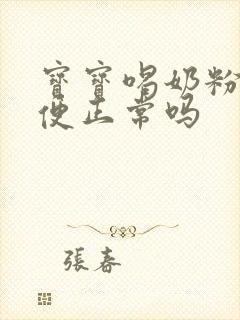 寳寳喝奶粉
便正常吗
張春